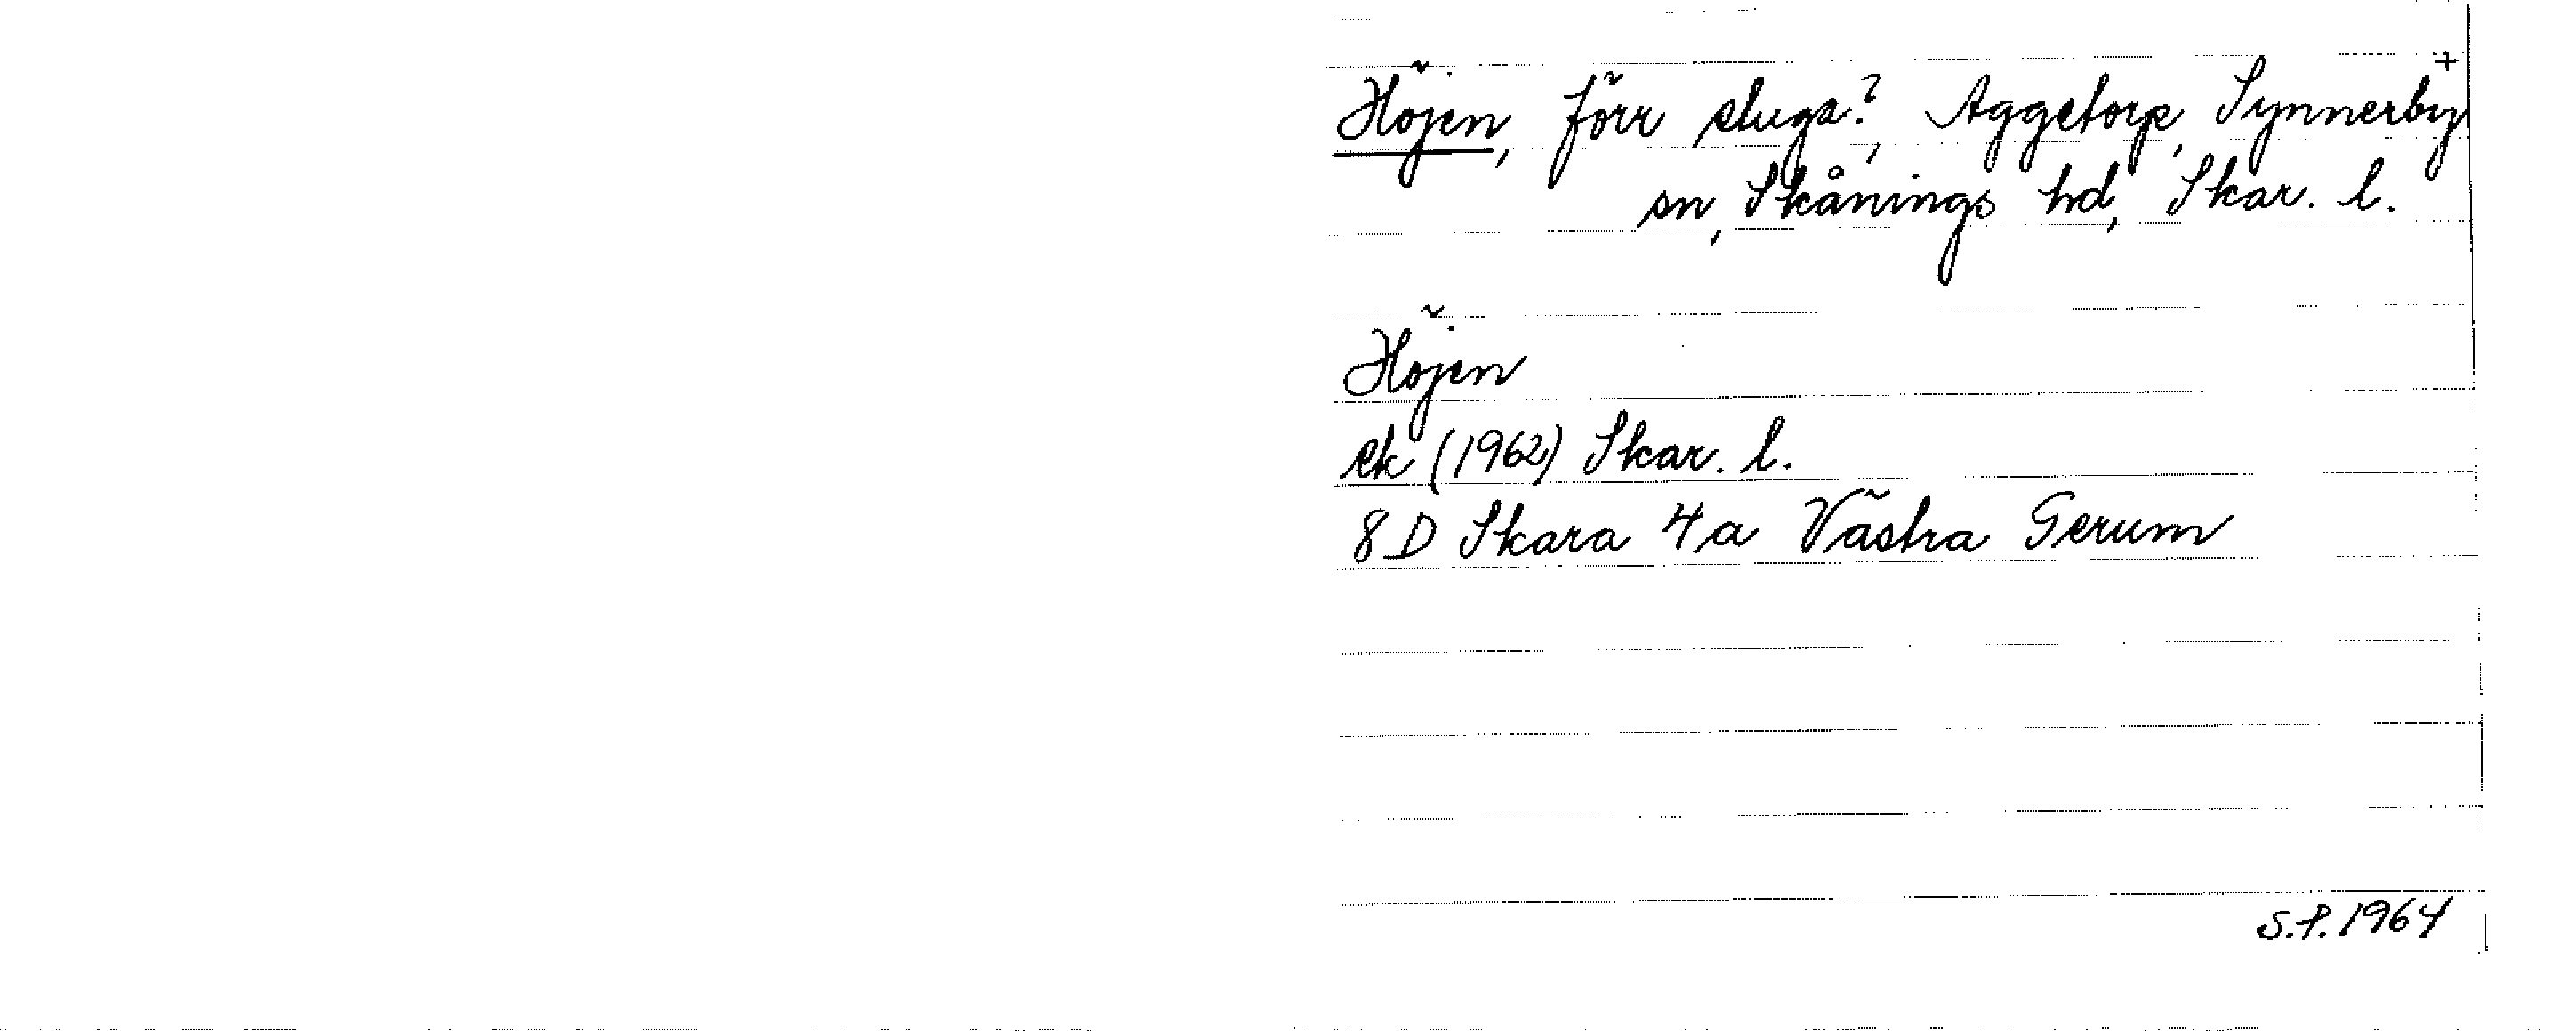 +
Höjen, förr stuga?, Aggetorp, Synnerby
sn, Skånings hd, Skar. l.
Höjen
ek (1962) Skar. l.
8D Skara 4a Västra Gerum
S.P. 1964